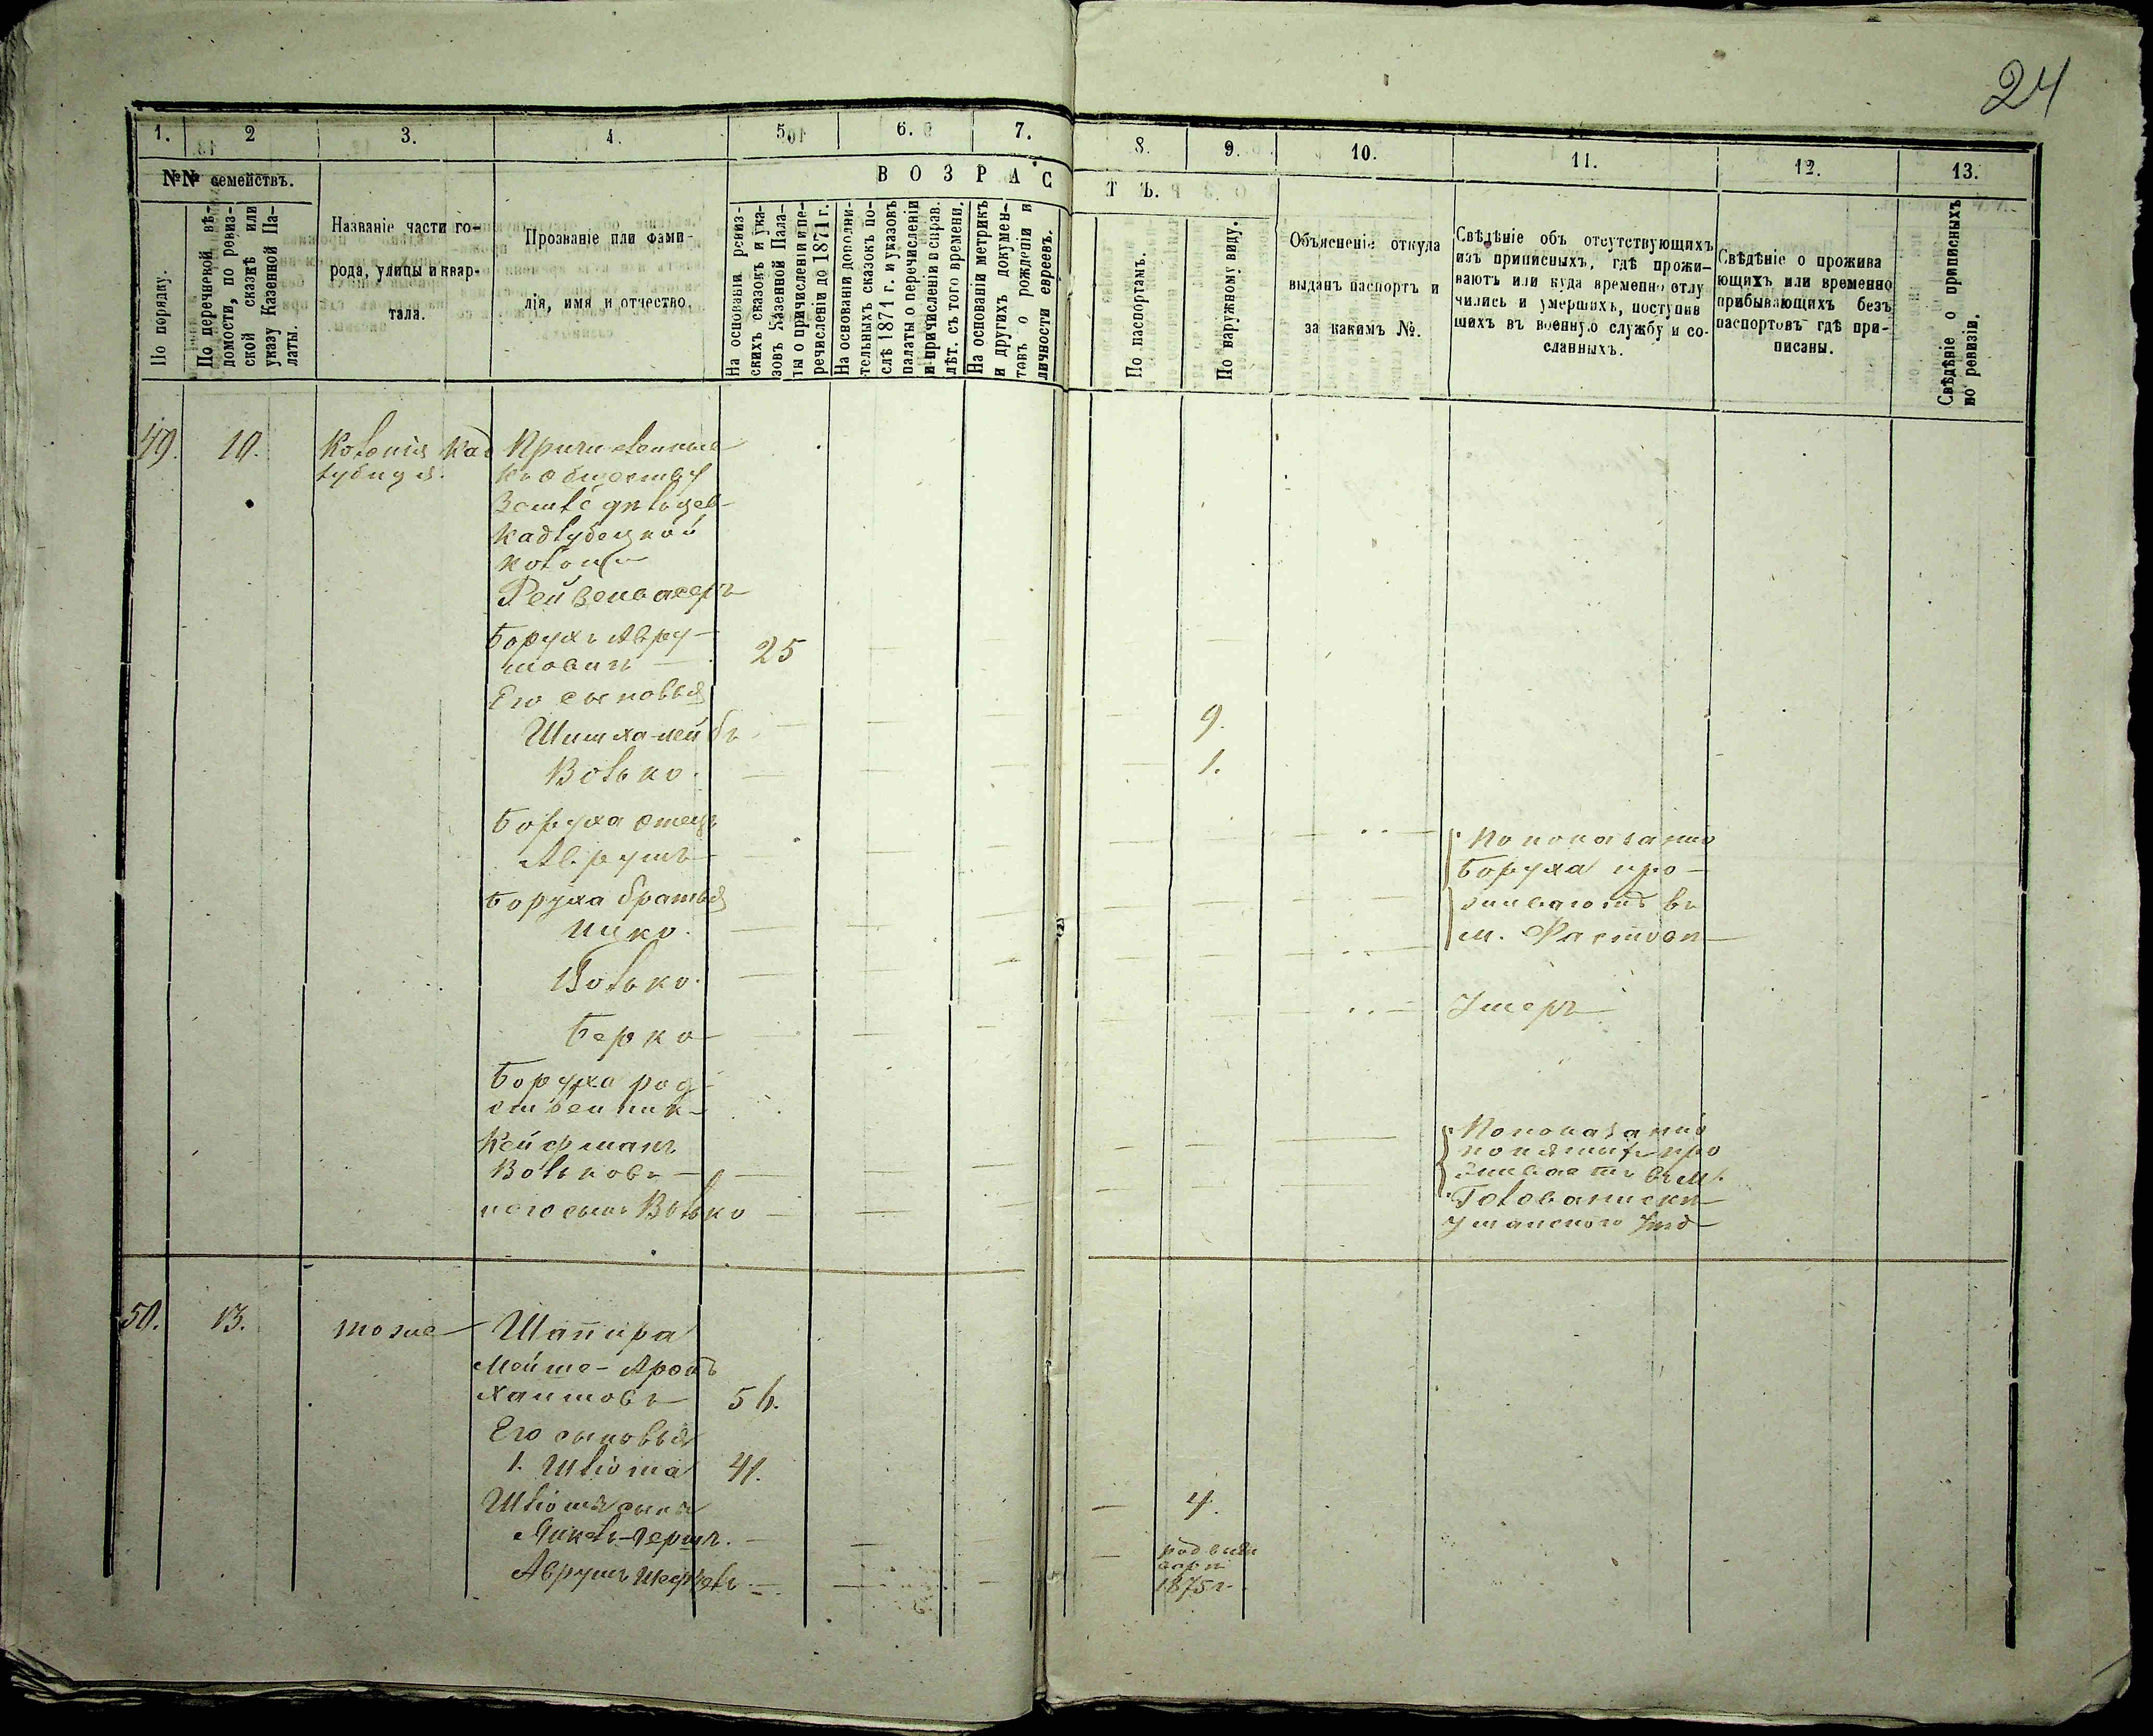 24
1. 2 3. 4. 5. 6. 7. 8. 9. 10. 11. 12. 13.
№№ семействъ.
По порядку.
По перечневой вѣ-
домости, по ревиз-
ской сказкѣ или
указу Казенной Па-
латы.
Названіе части го-
рода, улицы и квар-
тала.
Прозваніе или фами-
лія, имя и отчество.
ВОЗРАСТЪ.
На основаніи ревиз-
скихъ сказокъ и ука-
зовъ Казенной Пала-
ты о причисленіи и пе-
речисленіи до 1871 г.
На основаніи дополни-
тельныхъ сказокъ по-
слѣ 1871 г. и указовъ
палаты о перечисленіи
и причисленіи и справ.
лѣт. съ того времени.
На основаніи метрикъ
и другихъ докумен-
товъ о рожденіи и
личности евреевъ.
По паспортамъ.
По наружному виду.
Объясненіе откуда
выданъ паспортъ и
за какимъ №.
Свѣдѣніе объ отсутствующихъ
изъ приписныхъ, гдѣ прожи-
ваютъ или куда временно отлу
чились и умершихъ, поступив
шихъ въ военную службу и со-
сланныхъ.
Свѣдѣніе о прожива
ющихъ или временно
прибывающихъ безъ
паспортовъ гдѣ при-
писаны.
Свѣдѣніе о приписныхъ
по ревизіи.
49. 10. Колонія Кад
лубица.
Причисленные
къ обществу
Кадлубицкой
колоніи
Борухъ Авру-
мовичъ — 25
Его сыновья
Шимха-лейбъ 9.
Волько. 1.
Боруха отецъ
Аврумъ
Боруха братья
Ицко.
Волько.
Берко
По показанію
Боруха про-
живаютъ въ
м. Фастовѣ
Умеръ
Боруха род-
ственник
Кейфманъ
Вольковъ —
и его сынъ Волько
По показанію
понятыхъ про
живаетъ въ м.
Голованискѣ
Уманского Уѣзд
50. 13. тоже Шапира
Мойше-Аронъ
Хаимовъ 56.
Его сыновья
1. Шліома 41.
Шліомы сыновья
Янкель-Гершъ. 4.
Аврумъ
1875 г.